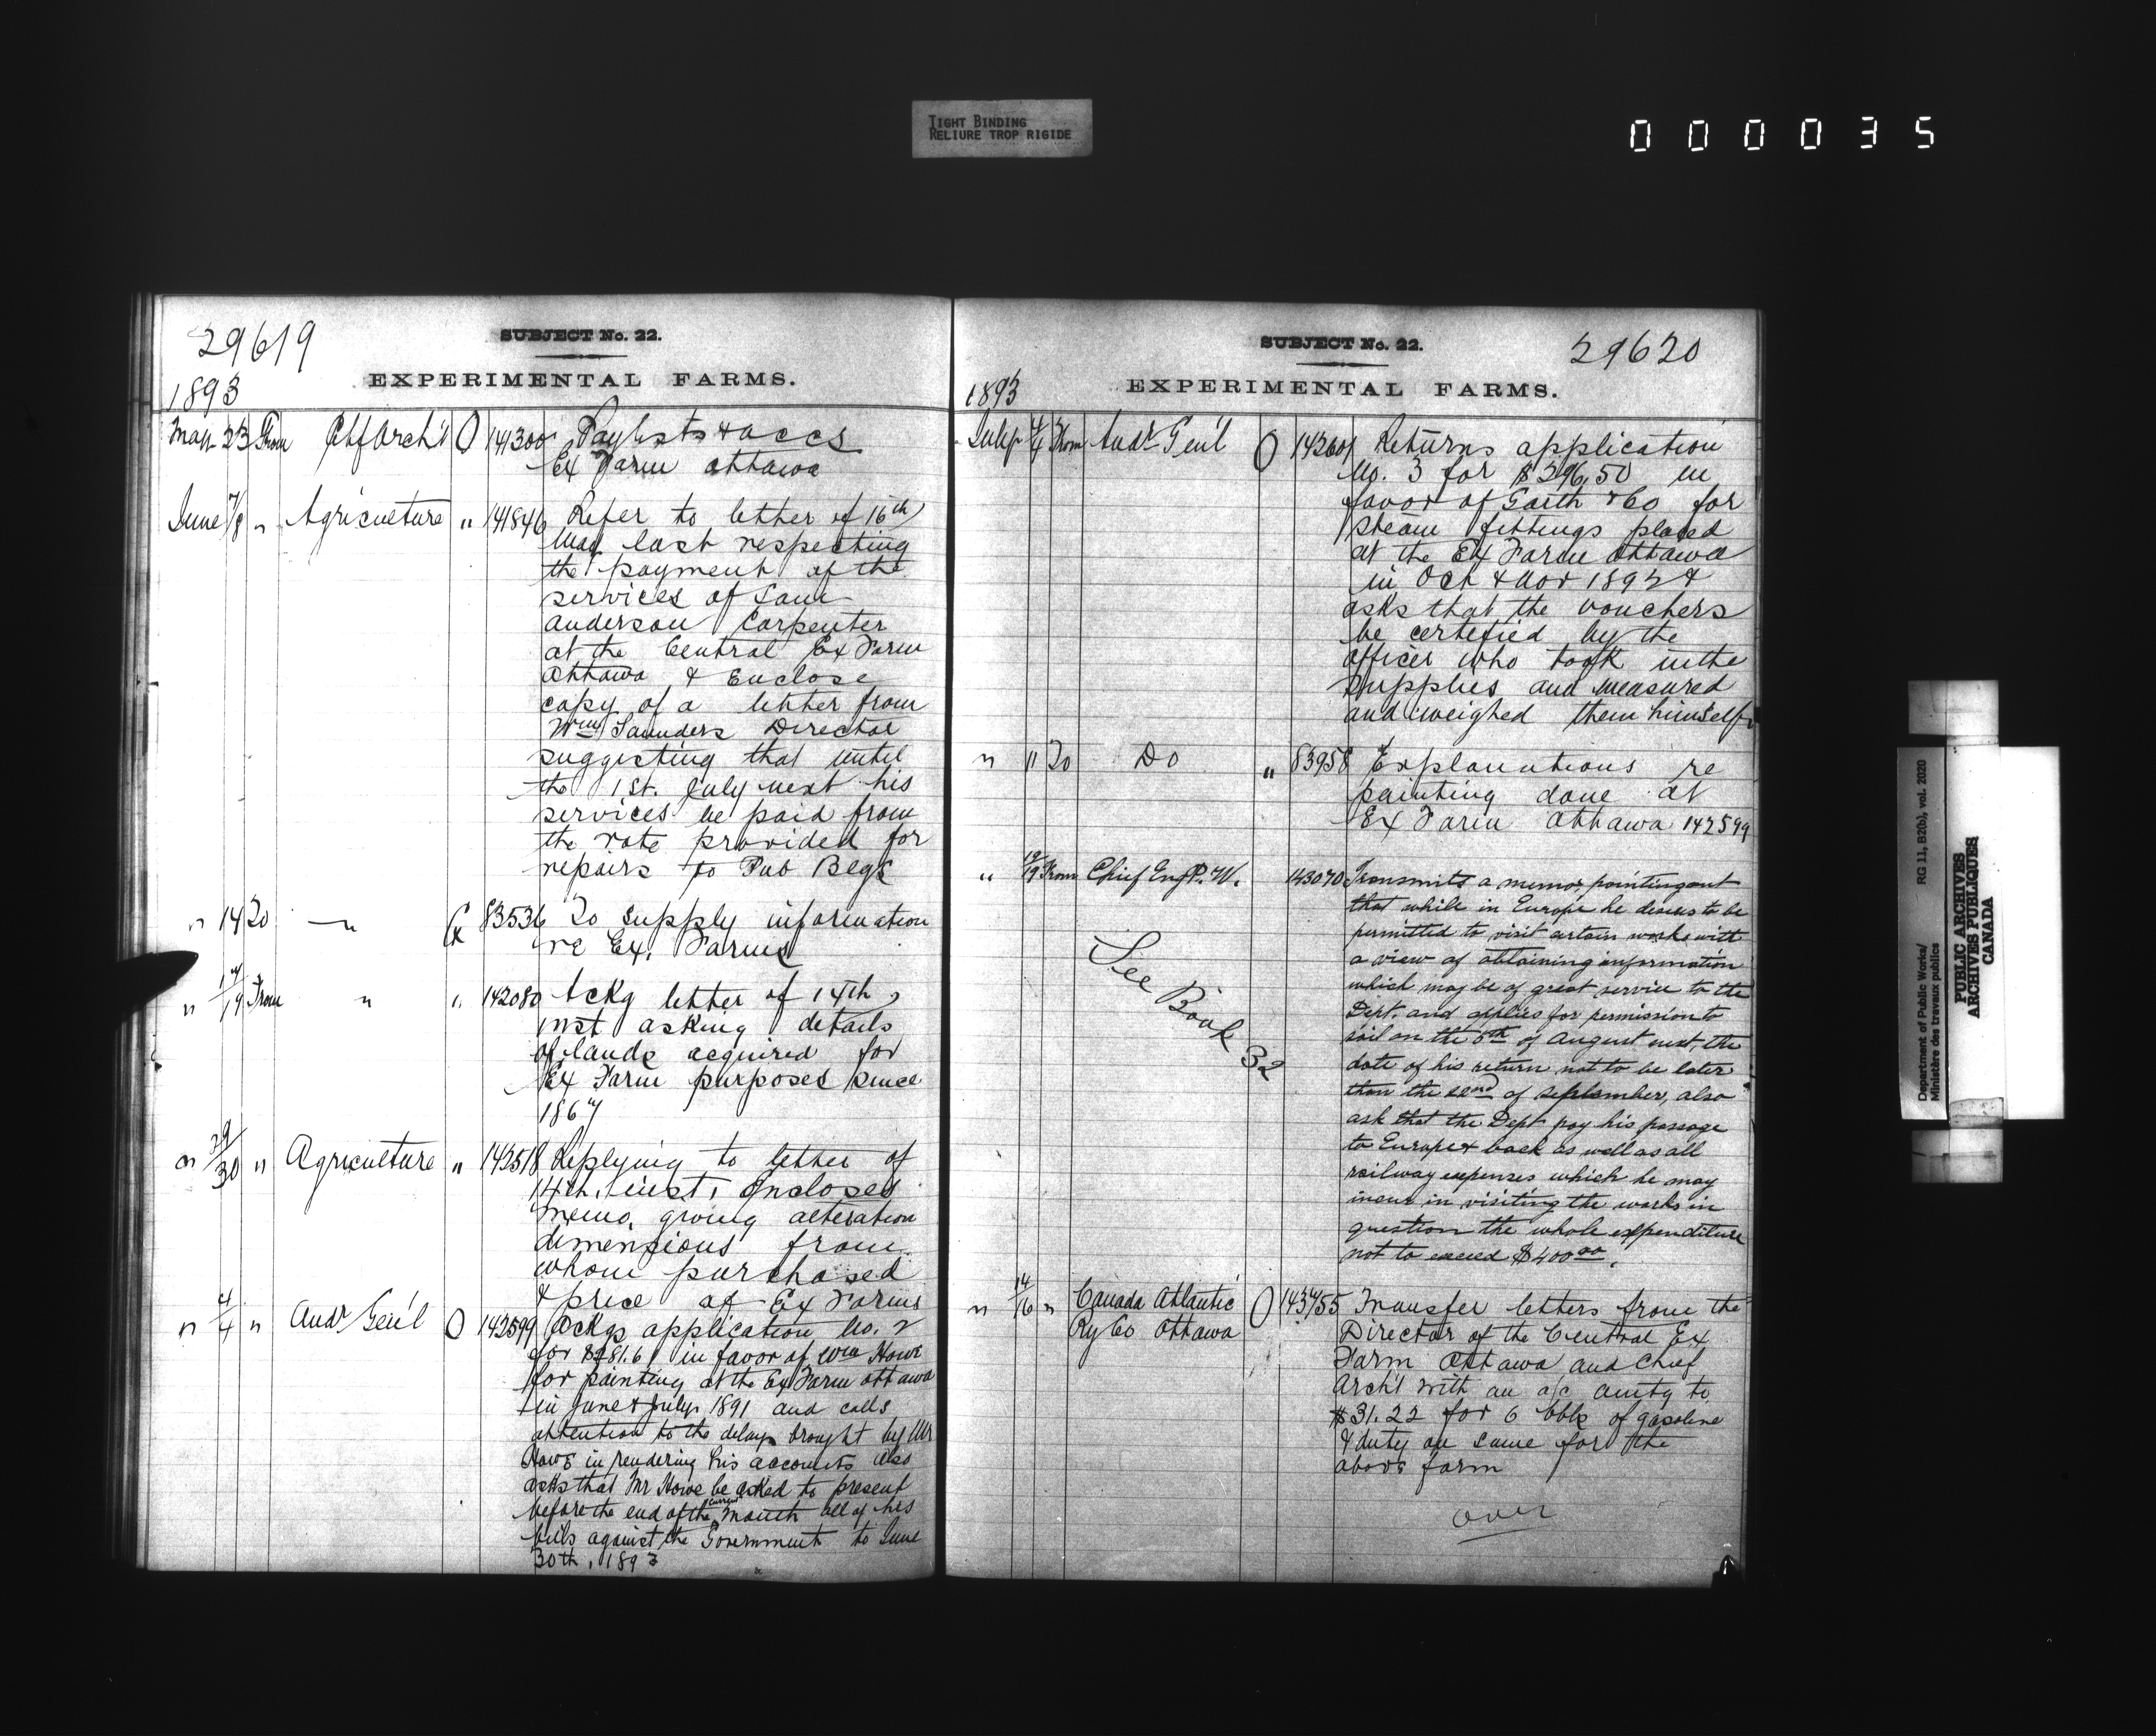 TIGHT BINDING
RELIURE TROP RIGIDE
000035
29619
SUBJECT No. 22.
EXPERIMENTAL FARMS.
1893
May 23 From Chf Arch't O 141300 Paylists & accs
Ex Farm Ottawa
June 7/8 " Agriculture " 141846 Refer to letter of 16th
May last respecting
the payment of the
services of Sam
Anderson Carpenter
at the Central Ex Farm
Ottawa & Enclose
copy of a letter from
Wm Saunders Director
suggesting that until
the 1st. July next his
services be paid from
the vote provided for
repairs to Pub Blgs
" 14 To " 83536 To supply information
re Ex. Farms
" 17/19 From " " 142080 Ackg letter of 14th
inst asking details
of lands acquired for
Ex Farm purposes since
1867
" 29/30 " Agriculture " 142518 Replying to letter of
14th. inst. Encloses
memo. giving alteration
dimensions from
whom purchased
& price of Ex Farms
" 4/4 " Audr Gen'l O 142599 Ackgs application No. 2
for $281.61 in favor of Wm Howe
for painting at the Ex Farm Ottawa
in June & July 1891 and calls
attention to the delay brought by Mr
Howe in rendering his accounts also
asks that Mr Howe be asked to present
before the end of the current month all of his
bills against the Government to June
30th, 1893
SUBJECT No. 22.
29620
EXPERIMENTAL FARMS.
1893
July 4/4 From Audr Gen'l O 142601 Returns application
No. 3 for $296.50 in
favor of Garth & Co for
steam fittings placed
at the Ex Farm Ottawa
in Oct & Nov 1892 &
asks that the vouchers
be certified by the
officer who took in the
supplies and measured
and weighed them himself
" 11 To Do " 83958 Explanations re
painting done at
Ex Farm Ottawa 142599
" 12/19 From Chief Eng P.W. 143070 Transmits a memo, pointing out
that while in Europe he desires to be
permitted to visit certain works with
a view of obtaining information
which may be of great service to the
Dept. and applies for permission to
sail on the 5th of August next, the
date of his return not to be later
than the 22nd of September, also
ask that the Dept pay his passage
to Europe & back as well as all
railway expenses which he may
incur in visiting the works in
question the whole expenditure
not to exceed $400.00.
See Book 32
" 14/16 " Canada Atlantic O 143455 Transfer letters from the
Ry Co Ottawa Director of the Central Ex
Farm Ottawa and Chief
Arch't with an a/c amtg to
$31.22 for 6 bbls of gasoline
& duty on same for the
above farm
over
Department of Public Works/
Ministère des travaux publics
RG 11, B2(b), vol. 2020
PUBLIC ARCHIVES
ARCHIVES PUBLIQUES
CANADA